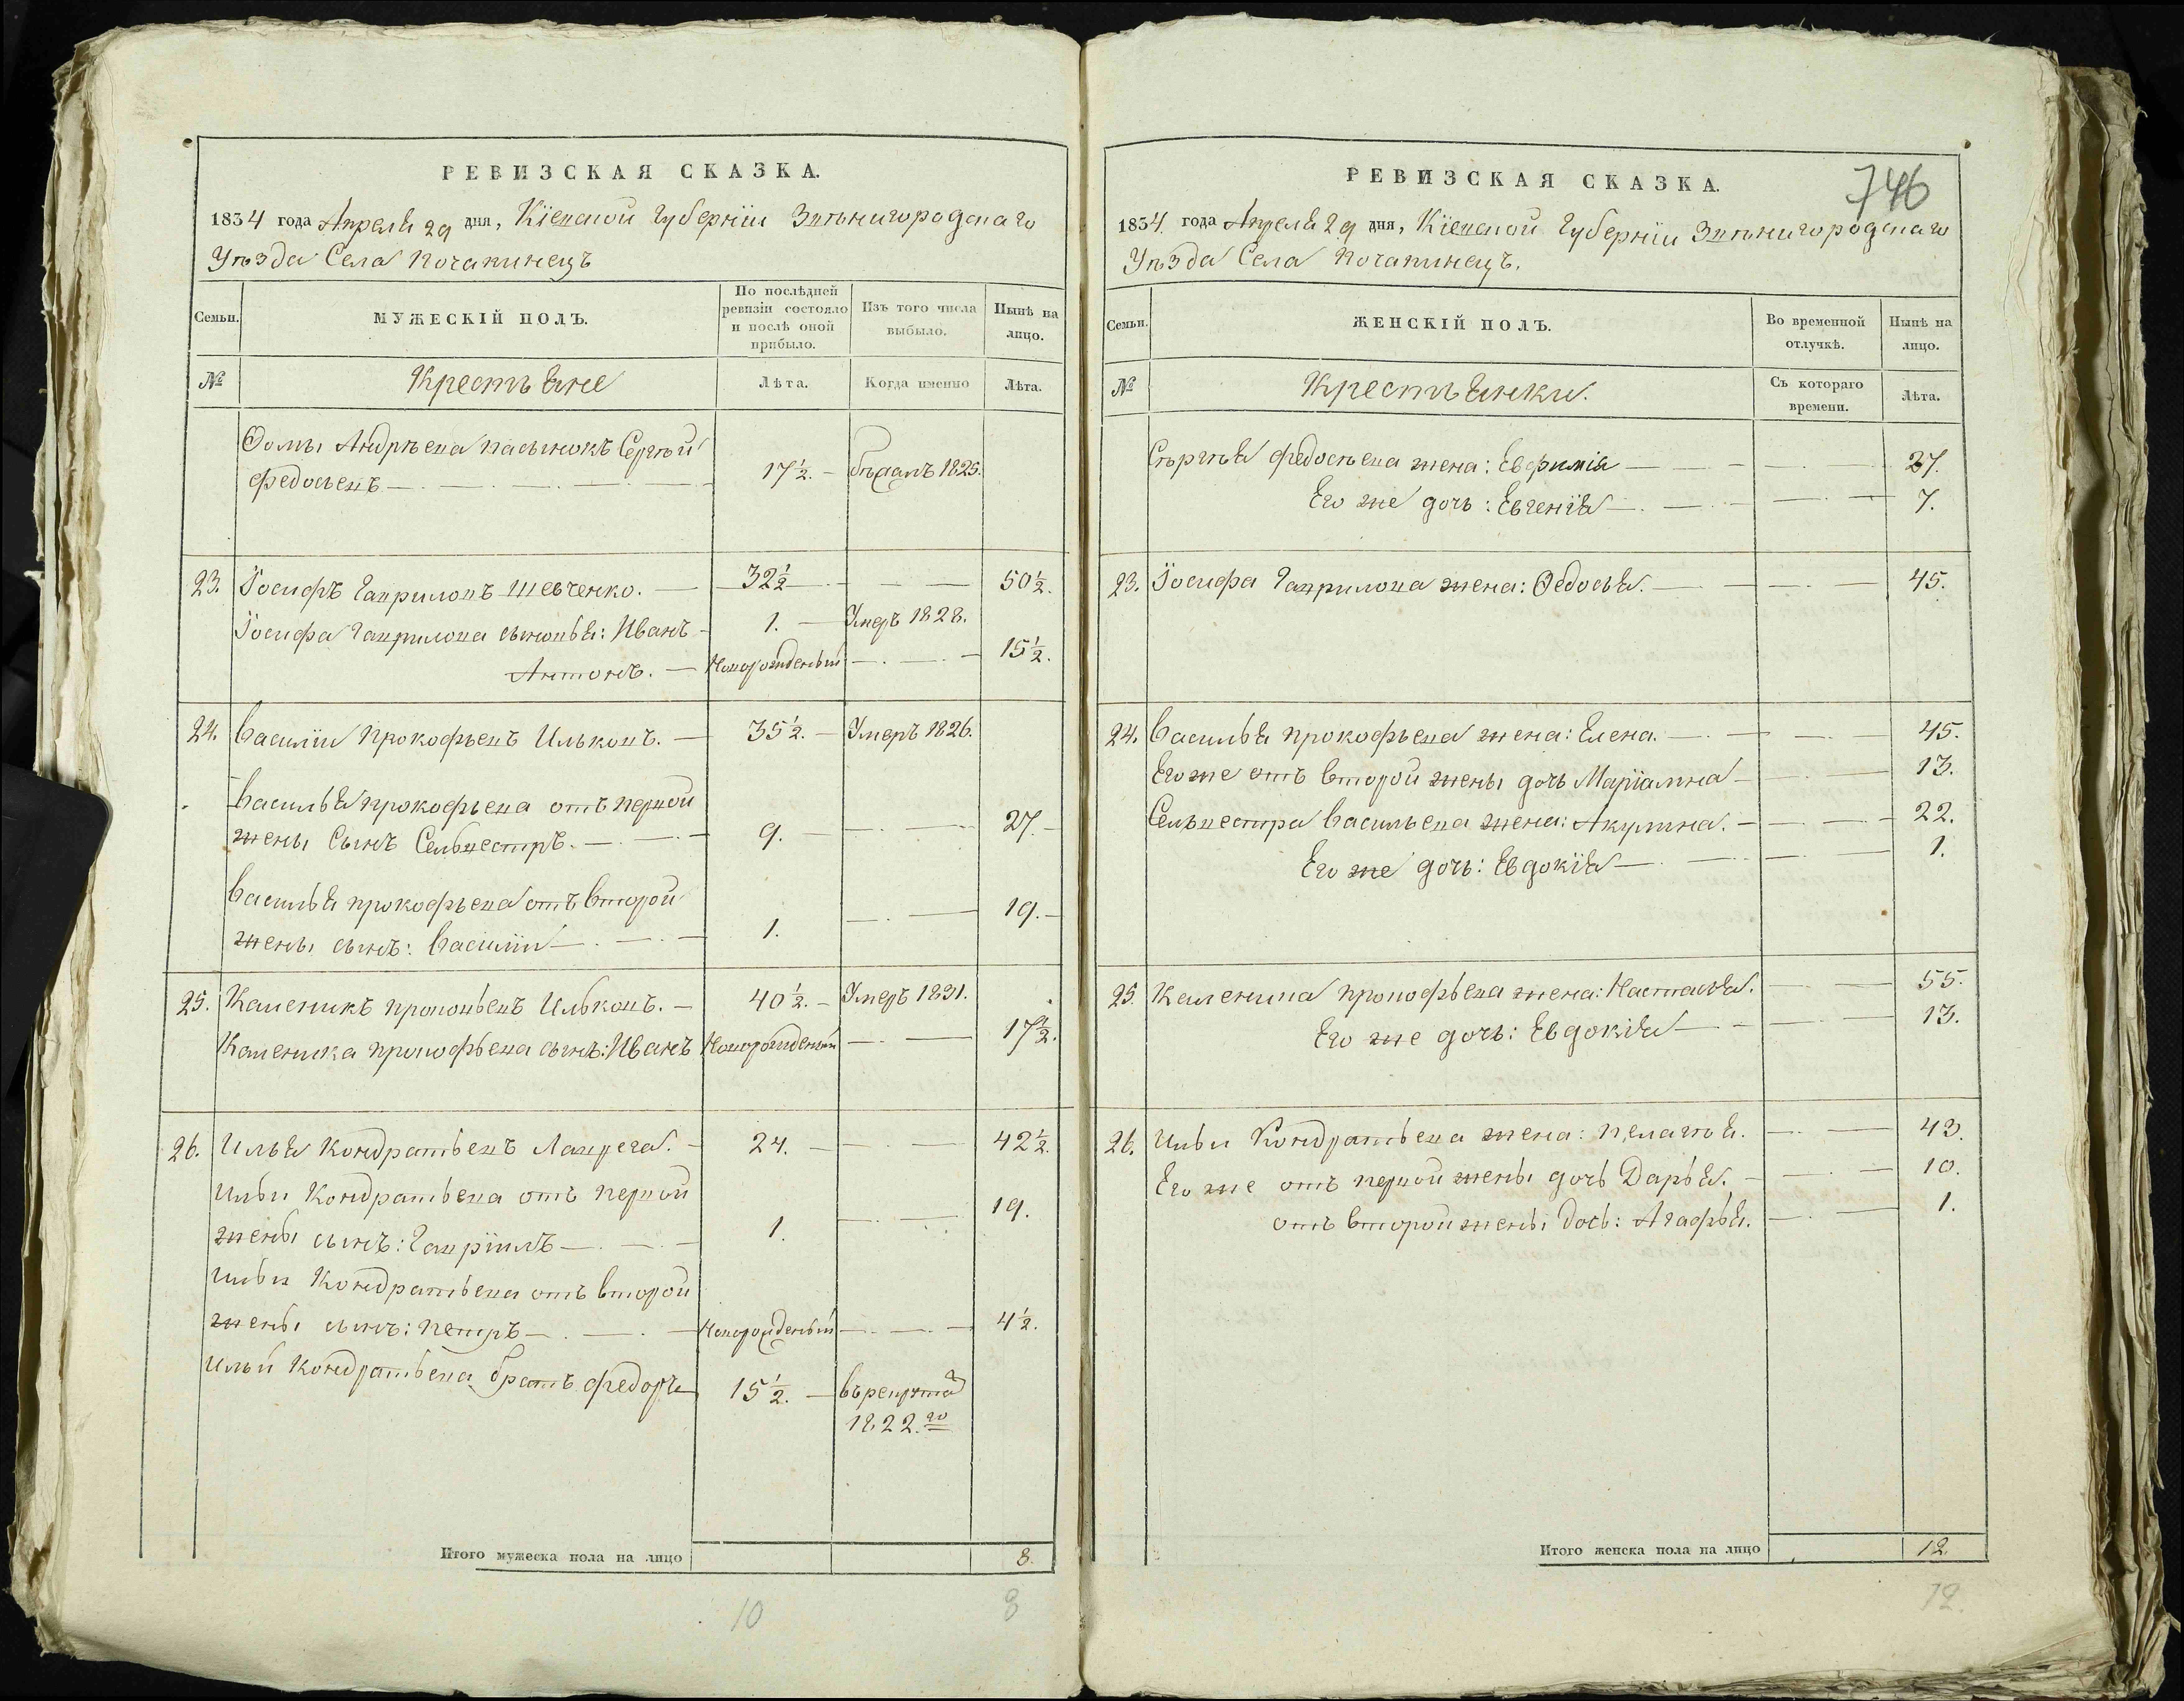 РЕВИЗСКАЯ СКАЗКА.
1834 года Апреля 29 дня, Кіевской Губерніи Звѣнигородскаго
Уѣзда Села Почапинецъ
Семьи.
МУЖЕСКІЙ ПОЛЪ.
По послѣдней ревизіи состояло и послѣ оной прибыло.
Изъ того числа выбыло.
Нынѣ на лицо.
№
Крестьяне
Лѣта.
Когда именно
Лѣта.
Ѳомы Андрѣева пасынокъ Сергѣй
Федосѣевъ 17½. Бѣжалъ 1825.
23. Іосифъ Гавриловъ Шевченко. 32½ 50½.
Іосифа Гаврилова сыновья: Иванъ 1. Умеръ 1828.
Антонъ. Новорожденый 15½.
24. Василіи Прокофьевъ Ильковъ. 35½. Умеръ 1826.
Василья Прокофьева отъ первой
жены Сынъ Сельвестръ. 9. 27.
Василья Прокофьева отъ второй
жены сынъ: Василіи 1. 19.
25. Каленикъ Прокофьевъ Ильковъ. 40½. Умеръ 1831.
Каленика Прокофьева сынъ: Иванъ Новорожденый 17½.
26. Илья Кондратьевъ Лаврега. 24. 42½.
Ильи Кондратьева отъ первой
жены сынъ: Гавріилъ 1. 19.
Ильи Кондратьева отъ второй
жены сынъ: Петръ Новорожденый 4½.
Ильи Кондратьева братъ Федоръ 15½. въ рекрута
1822.го
Итого мужеска пола на лицо 8.
10 8
РЕВИЗСКАЯ СКАЗКА.
746
1834. года Апреля 29 дня, Кіевской Губерніи Звѣнигородскаго
Уѣзда Села Почапинецъ.
Семьи.
ЖЕНСКІЙ ПОЛЪ.
Во временной отлучкѣ.
Нынѣ на лицо.
№
Крестьянки.
Съ котораго времени.
Лѣта.
Сѣргѣя Федосѣева жена: Евфимія 27.
Его же дочь: Евгенія 7.
23. Іосифа Гаврилова жена: Ѳедосья. 45.
24. Василья Прокофьева жена: Елена. 45.
Его же отъ второй жены дочь Маріамна 13.
Сельвестра Васильева жена: Акулина. 22.
Его же дочь: Евдокія 1.
25. Каленика Прокофьева жена: Настасья. 55.
Его же дочь: Евдокія 13.
26. Ильи Кондратьева жена: Пелагѣя. 43.
Его же отъ первой жены дочь Дарья. 10.
отъ второй жены дочь: Агафья. 1.
Итого женска пола на лицо 12.
12.